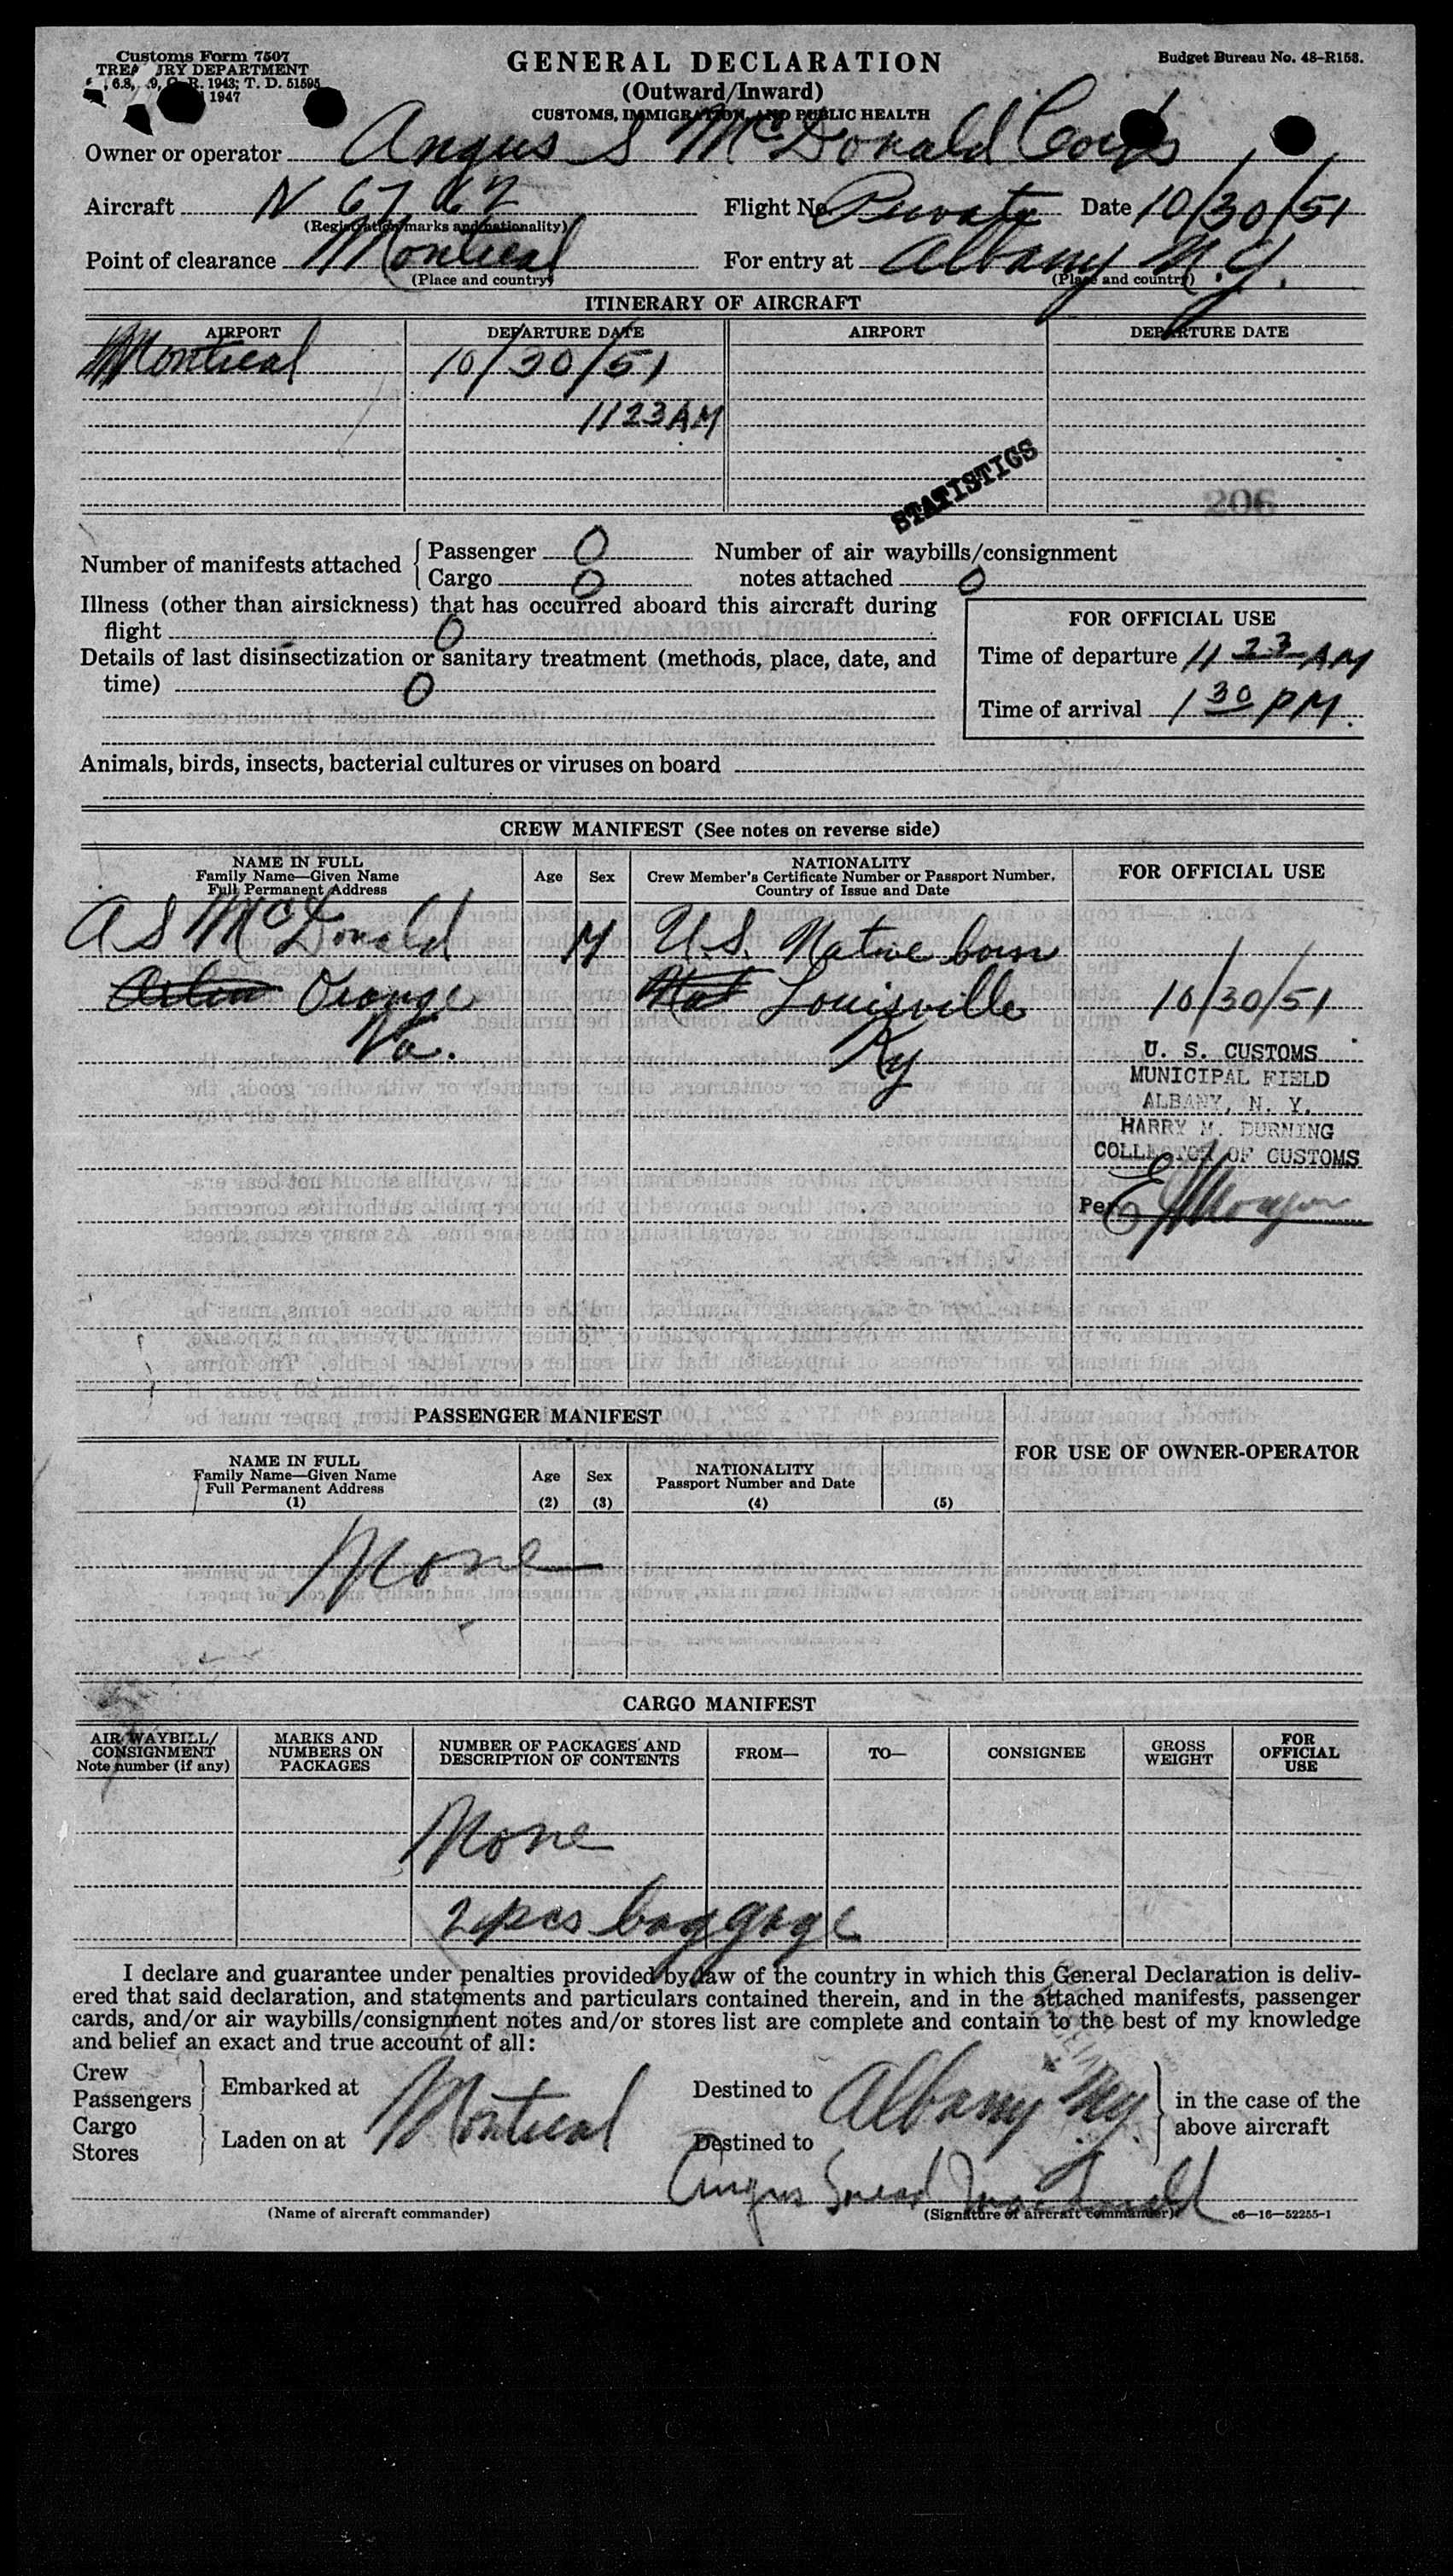 Customs Form 7507
TREA RY DEPARTMENT
R. 1943; T. D. 51595
1947
GENERAL DECLARATION
(Outward/Inward)
CUSTOMS, IMMIGRATION, AND PUBLIC HEALTH
Budget Bureau No. 48-R158.
Owner or operator Angus S McDonald Corps
Aircraft N 67 62 Flight No. Private Date 10/30/51
(Registration marks and nationality)
Point of clearance Montreal For entry at Albany N.Y.
(Place and country) (Place and country)
ITINERARY OF AIRCRAFT
AIRPORT DEPARTURE DATE AIRPORT DEPARTURE DATE
Montreal 10/30/51
1123 AM
STATISTICS
206
Number of manifests attached { Passenger 0 Number of air waybills/consignment
Cargo 0 notes attached 0
Illness (other than airsickness) that has occurred aboard this aircraft during
flight 0
Details of last disinsectization or sanitary treatment (methods, place, date, and
time) 0
FOR OFFICIAL USE
Time of departure 11 23 AM
Time of arrival 1 30 PM.
Animals, birds, insects, bacterial cultures or viruses on board
CREW MANIFEST (See notes on reverse side)
NAME IN FULL
Family Name—Given Name
Full Permanent Address
Age
Sex
NATIONALITY
Crew Member's Certificate Number or Passport Number,
Country of Issue and Date
FOR OFFICIAL USE
A S McDonald M U.S. Native born
Orange Louisville 10/30/51
Va. Ky
U. S. CUSTOMS
MUNICIPAL FIELD
ALBANY, N. Y.
HARRY M. DURNING
COLLECTOR OF CUSTOMS
Per
PASSENGER MANIFEST
FOR USE OF OWNER-OPERATOR
NAME IN FULL
Family Name—Given Name
Full Permanent Address
(1)
Age
(2)
Sex
(3)
NATIONALITY
Passport Number and Date
(4)
(5)
None
CARGO MANIFEST
AIR WAYBILL/
CONSIGNMENT
Note number (if any)
MARKS AND
NUMBERS ON
PACKAGES
NUMBER OF PACKAGES AND
DESCRIPTION OF CONTENTS
FROM—
TO—
CONSIGNEE
GROSS
WEIGHT
FOR
OFFICIAL
USE
None
2 pcs baggage
I declare and guarantee under penalties provided by law of the country in which this General Declaration is deliv-
ered that said declaration, and statements and particulars contained therein, and in the attached manifests, passenger
cards, and/or air waybills/consignment notes and/or stores list are complete and contain to the best of my knowledge
and belief an exact and true account of all:
Crew
Passengers } Embarked at Montreal Destined to Albany N.Y. } in the case of the
Cargo above aircraft
Stores } Laden on at Destined to
Angus Snead MacDonald
(Name of aircraft commander) (Signature of aircraft commander) c6—16—52255-1